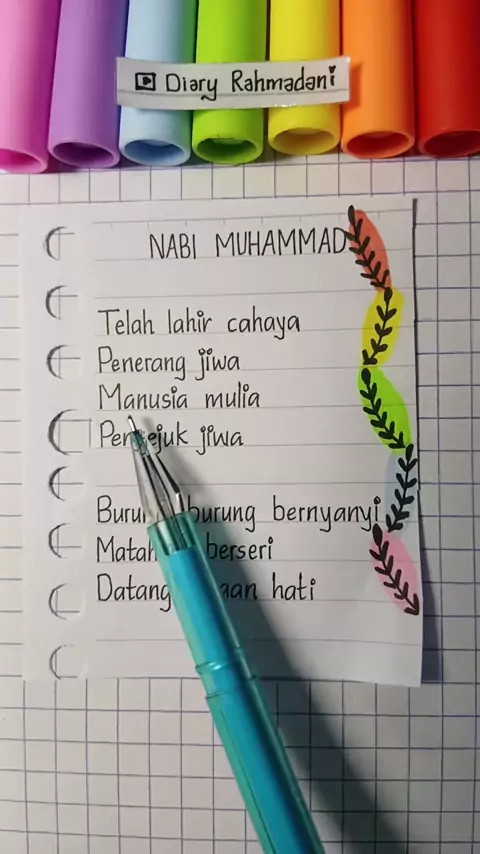 Diary Rahmadani
NABI MUHAMMAD
Telah lahir cahaya
Penerang jiwa
Manusia mulia
jiwa
burung bernyanyi
berseri
Datang hati